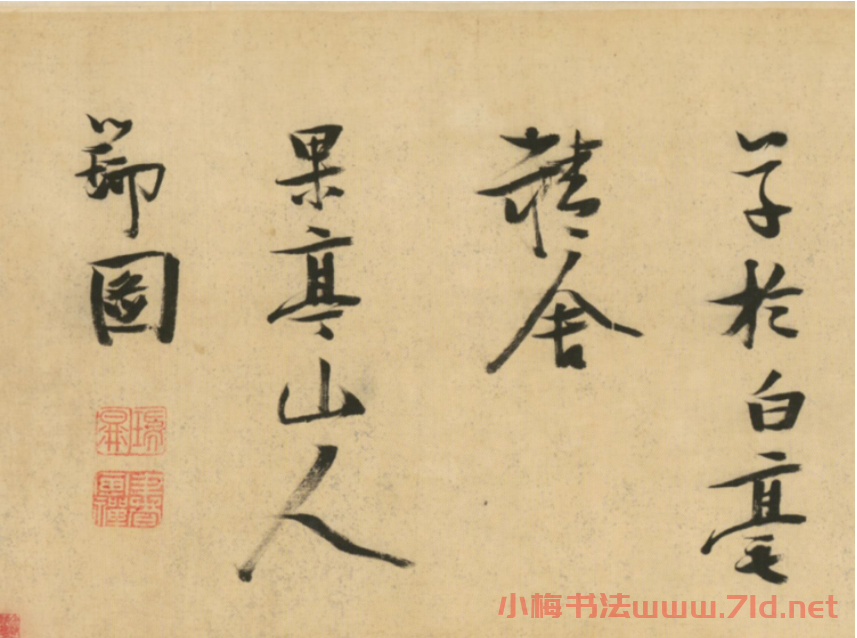 學於白毫
精舍
果亭山人
瑞圖
小梅书法www.7ld.net